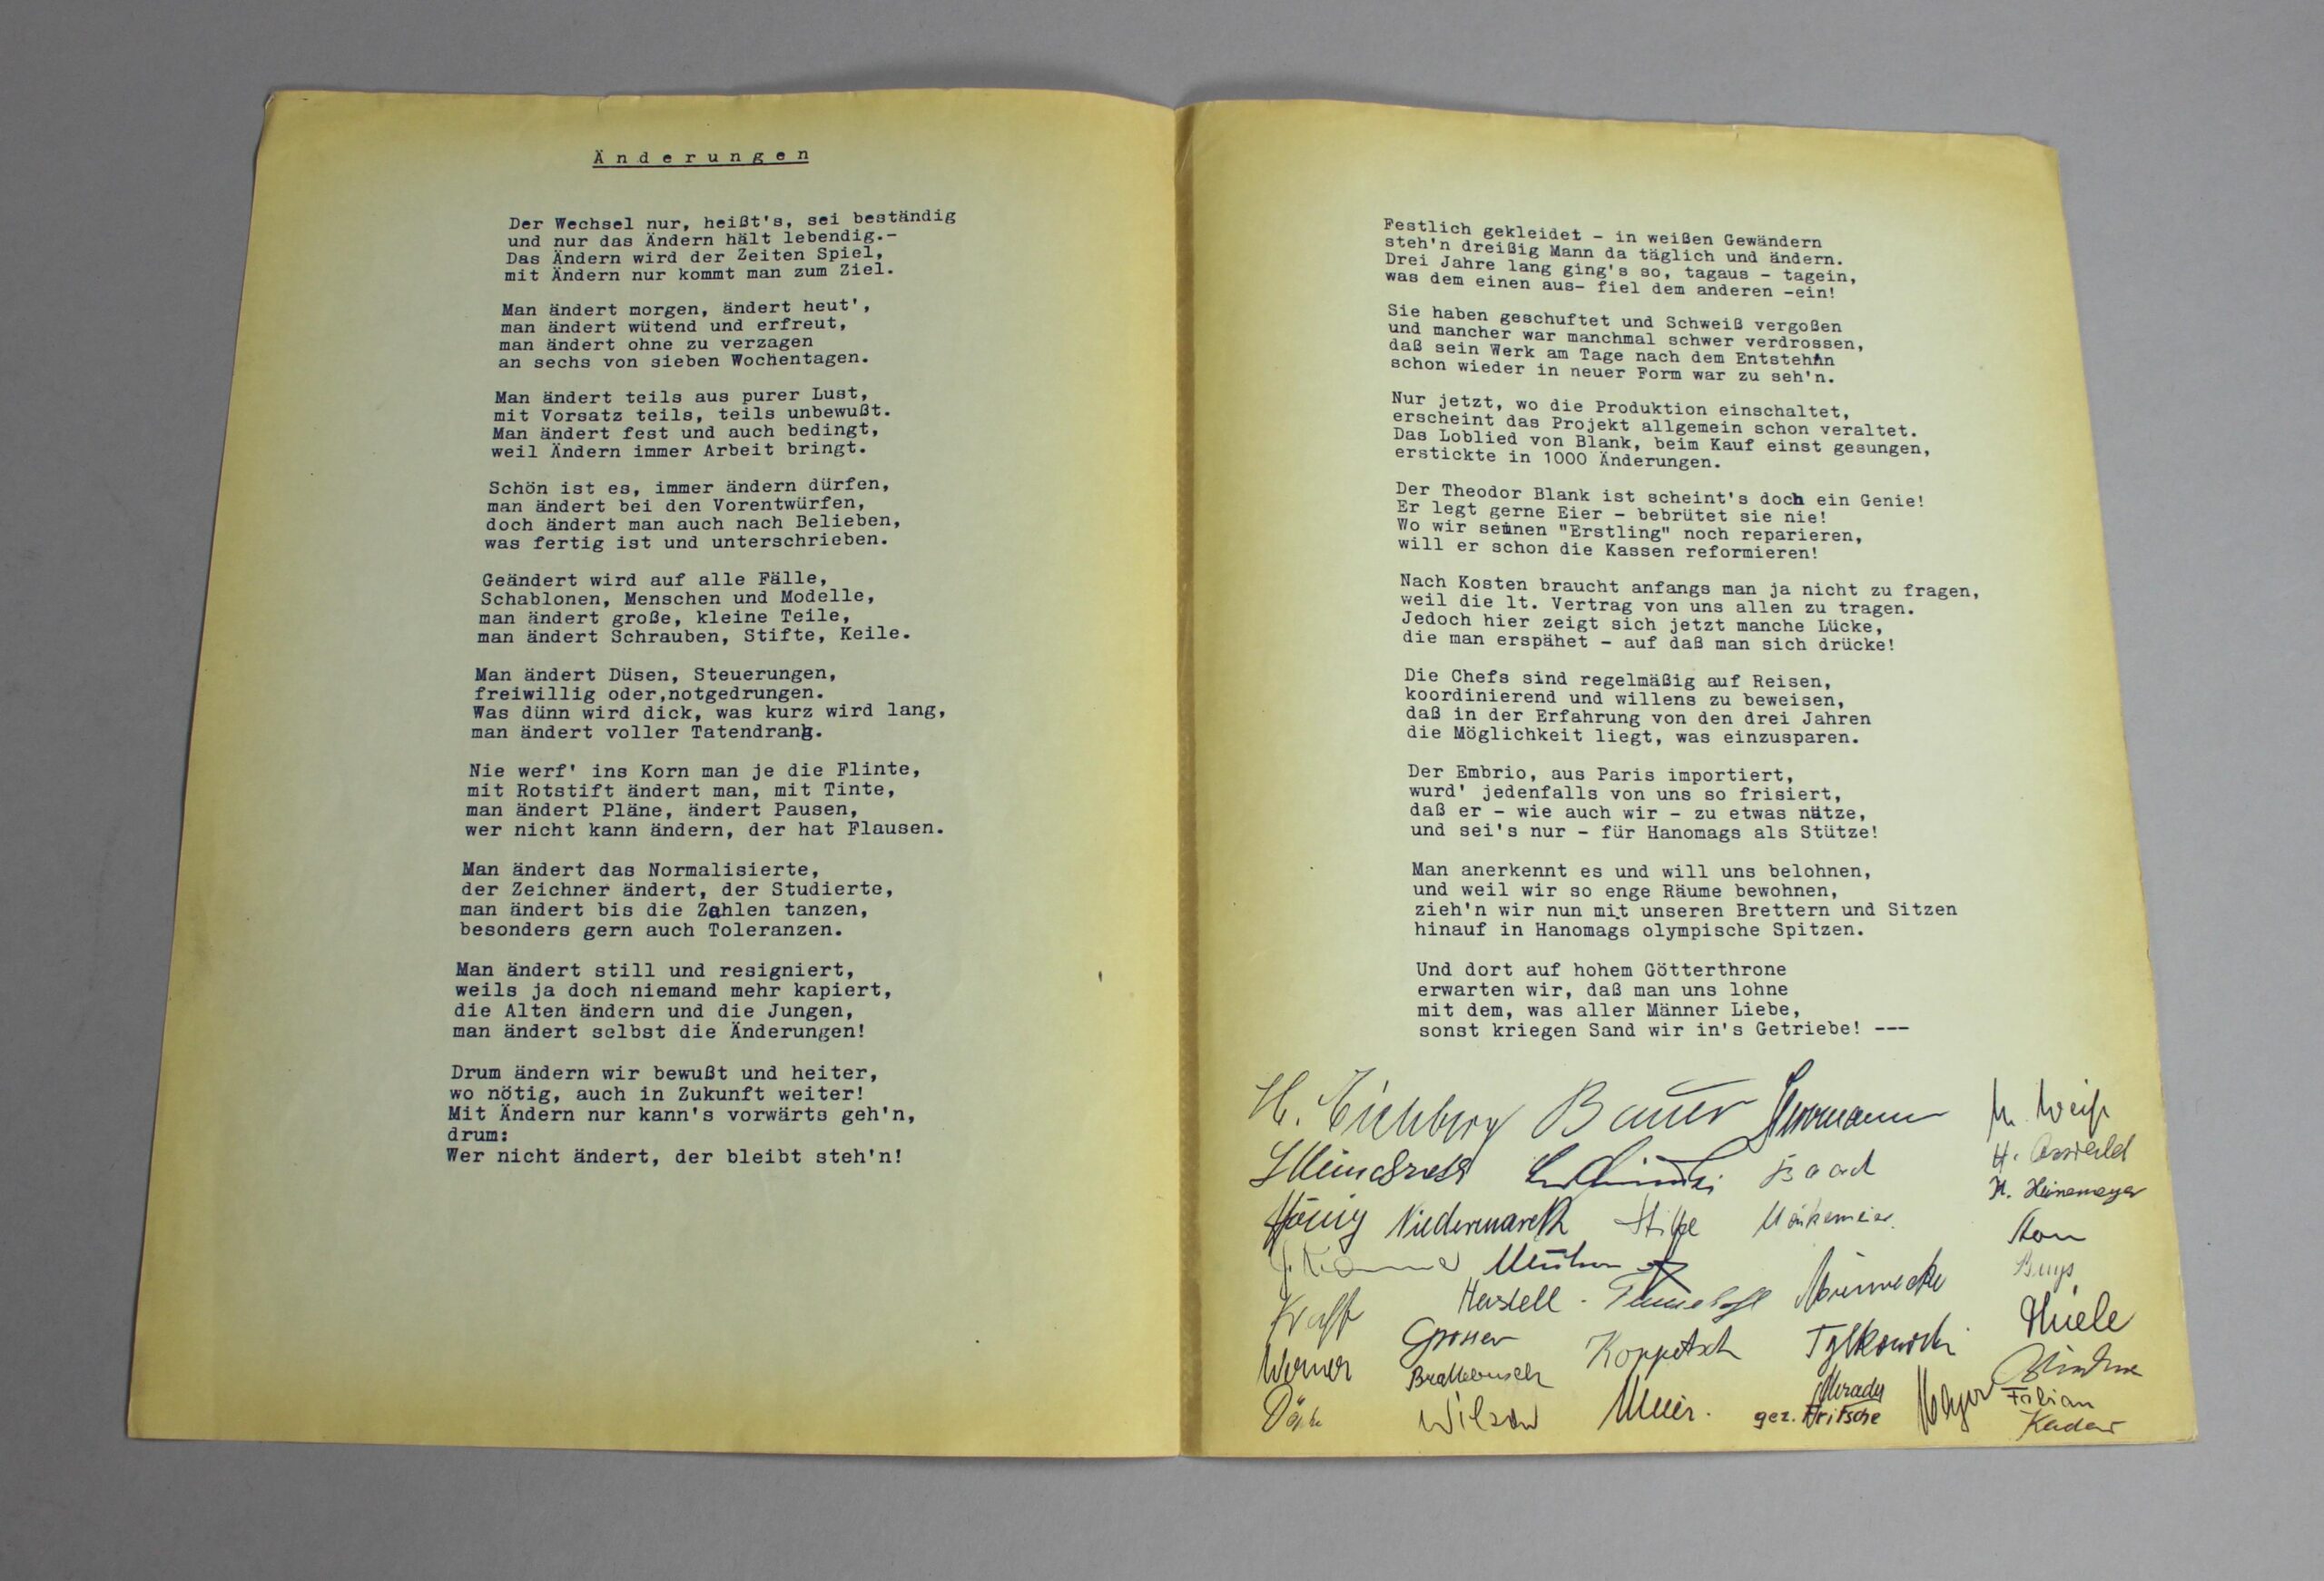 Änderungen
Der Wechsel nur, heißt's, sei beständig
und nur das Ändern hält lebendig.-
Das Ändern wird der Zeiten Spiel,
mit Ändern nur kommt man zum Ziel.
Man ändert morgen, ändert heut',
man ändert wütend und erfreut,
man ändert ohne zu verzagen
an sechs von sieben Wochentagen.
Man ändert teils aus purer Lust,
mit Vorsatz teils, teils unbewußt.
Man ändert fest und auch bedingt,
weil Ändern immer Arbeit bringt.
Schön ist es, immer ändern dürfen,
man ändert bei den Vorentwürfen,
doch ändert man auch nach Belieben,
was fertig ist und unterschrieben.
Geändert wird auf alle Fälle,
Schablonen, Menschen und Modelle,
man ändert große, kleine Teile,
man ändert Schrauben, Stifte, Keile.
Man ändert Düsen, Steuerungen,
freiwillig oder,notgedrungen.
Was dünn wird dick, was kurz wird lang,
man ändert voller Tatendrang.
Nie werf' ins Korn man je die Flinte,
mit Rotstift ändert man, mit Tinte,
man ändert Pläne, ändert Pausen,
wer nicht kann ändern, der hat Flausen.
Man ändert das Normalisierte,
der Zeichner ändert, der Studierte,
man ändert bis die Zahlen tanzen,
besonders gern auch Toleranzen.
Man ändert still und resigniert,
weils ja doch niemand mehr kapiert,
die Alten ändern und die Jungen,
man ändert selbst die Änderungen!
Drum ändern wir bewußt und heiter,
wo nötig, auch in Zukunft weiter!
Mit Ändern nur kann's vorwärts geh'n,
drum:
Wer nicht ändert, der bleibt steh'n!
Festlich gekleidet - in weißen Gewändern
steh'n dreißig Mann da täglich und ändern.
Drei Jahre lang ging's so, tagaus - tagein,
was dem einen aus- fiel dem anderen -ein!
Sie haben geschuftet und Schweiß vergoßen
und mancher war manchmal schwer verdrossen,
daß sein Werk am Tage nach dem Entsteh'n
schon wieder in neuer Form war zu seh'n.
Nur jetzt, wo die Produktion einschaltet,
erscheint das Projekt allgemein schon veraltet.
Das Loblied von Blank, beim Kauf einst gesungen,
erstickte in 1000 Änderungen.
Der Theodor Blank ist scheint's doch ein Genie!
Er legt gerne Eier - bebrütet sie nie!
Wo wir seinen "Erstling" noch reparieren,
will er schon die Kassen reformieren!
Nach Kosten braucht anfangs man ja nicht zu fragen,
weil die lt. Vertrag von uns allen zu tragen.
Jedoch hier zeigt sich jetzt manche Lücke,
die man erspähet - auf daß man sich drücke!
Die Chefs sind regelmäßig auf Reisen,
koordinierend und willens zu beweisen,
daß in der Erfahrung von den drei Jahren
die Möglichkeit liegt, was einzusparen.
Der Embrio, aus Paris importiert,
wurd' jedenfalls von uns so frisiert,
daß er - wie auch wir - zu etwas nütze,
und sei's nur - für Hanomags als Stütze!
Man anerkennt es und will uns belohnen,
und weil wir so enge Räume bewohnen,
zieh'n wir nun mit unseren Brettern und Sitzen
hinauf in Hanomags olympische Spitzen.
Und dort auf hohem Götterthrone
erwarten wir, daß man uns lohne
mit dem, was aller Männer Liebe,
sonst kriegen Sand wir in's Getriebe! ---
H. Eichberg Bauer Herrmann M. Weiß
Baad H. Osswald
H. Heinemeyer
König Niedermarck Hilpe Mönkemeier
Buys
Kraft Hartell
Thiele
Werner Grosser Koppetsch Tylkowski
Wilson Meier. gez. Fritsche Meyer Fabian
Kadow